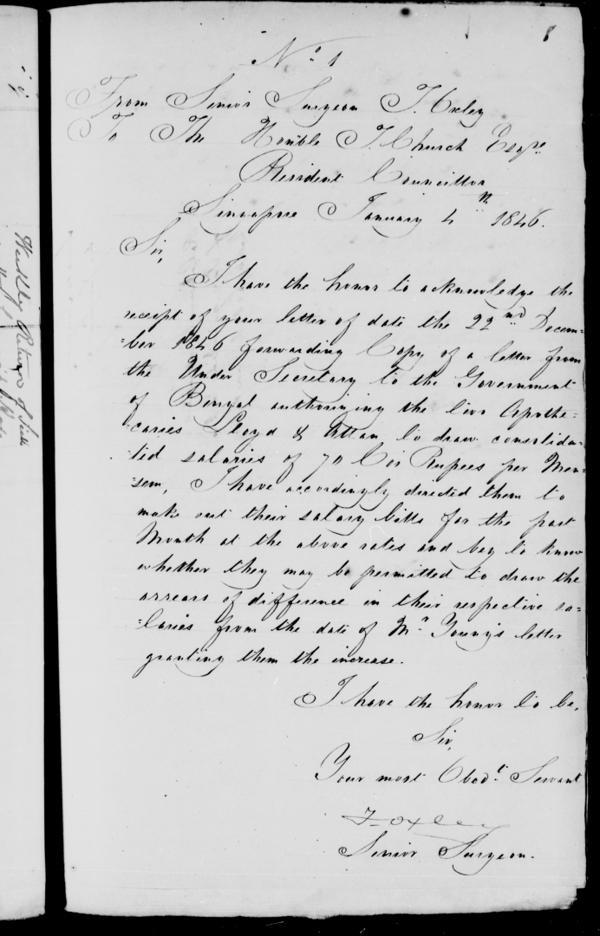 No. 1
From Senior Surgeon T. Oxley
To The Honble T. Church Esqre
Resident Councillor
Singapore January 4th 1846.
Sir,
I have the honor to acknowledge the
receipt of your letter of date the 22nd Decem-
-ber 1846 forwarding Copy of a letter from
the Under Secretary to the Government
of Bengal authorizing the two Apothe-
-caries Lloyd & to draw consolida-
-ted salaries of 70 Co's Rupees per Men-
-sem, I have accordingly directed them to
make out their salary bills for the past
Month at the above rates and beg to know
whether they may be permitted to draw the
arrears of difference in their respective sa-
-laries from the date of Mr Young's letter
granting them the increase.
I have the honor to be,
Sir,
Your most Obedt. Servant
T. Oxley
Senior Surgeon.
Weekly Return of Sick